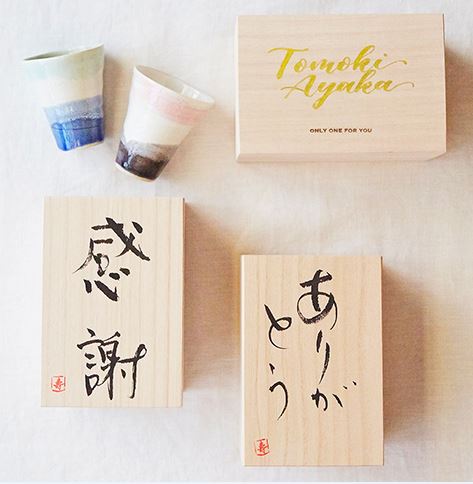 Tomoki
Ayaka
ONLY ONE FOR YOU
感謝
寿
ありが
とう
寿